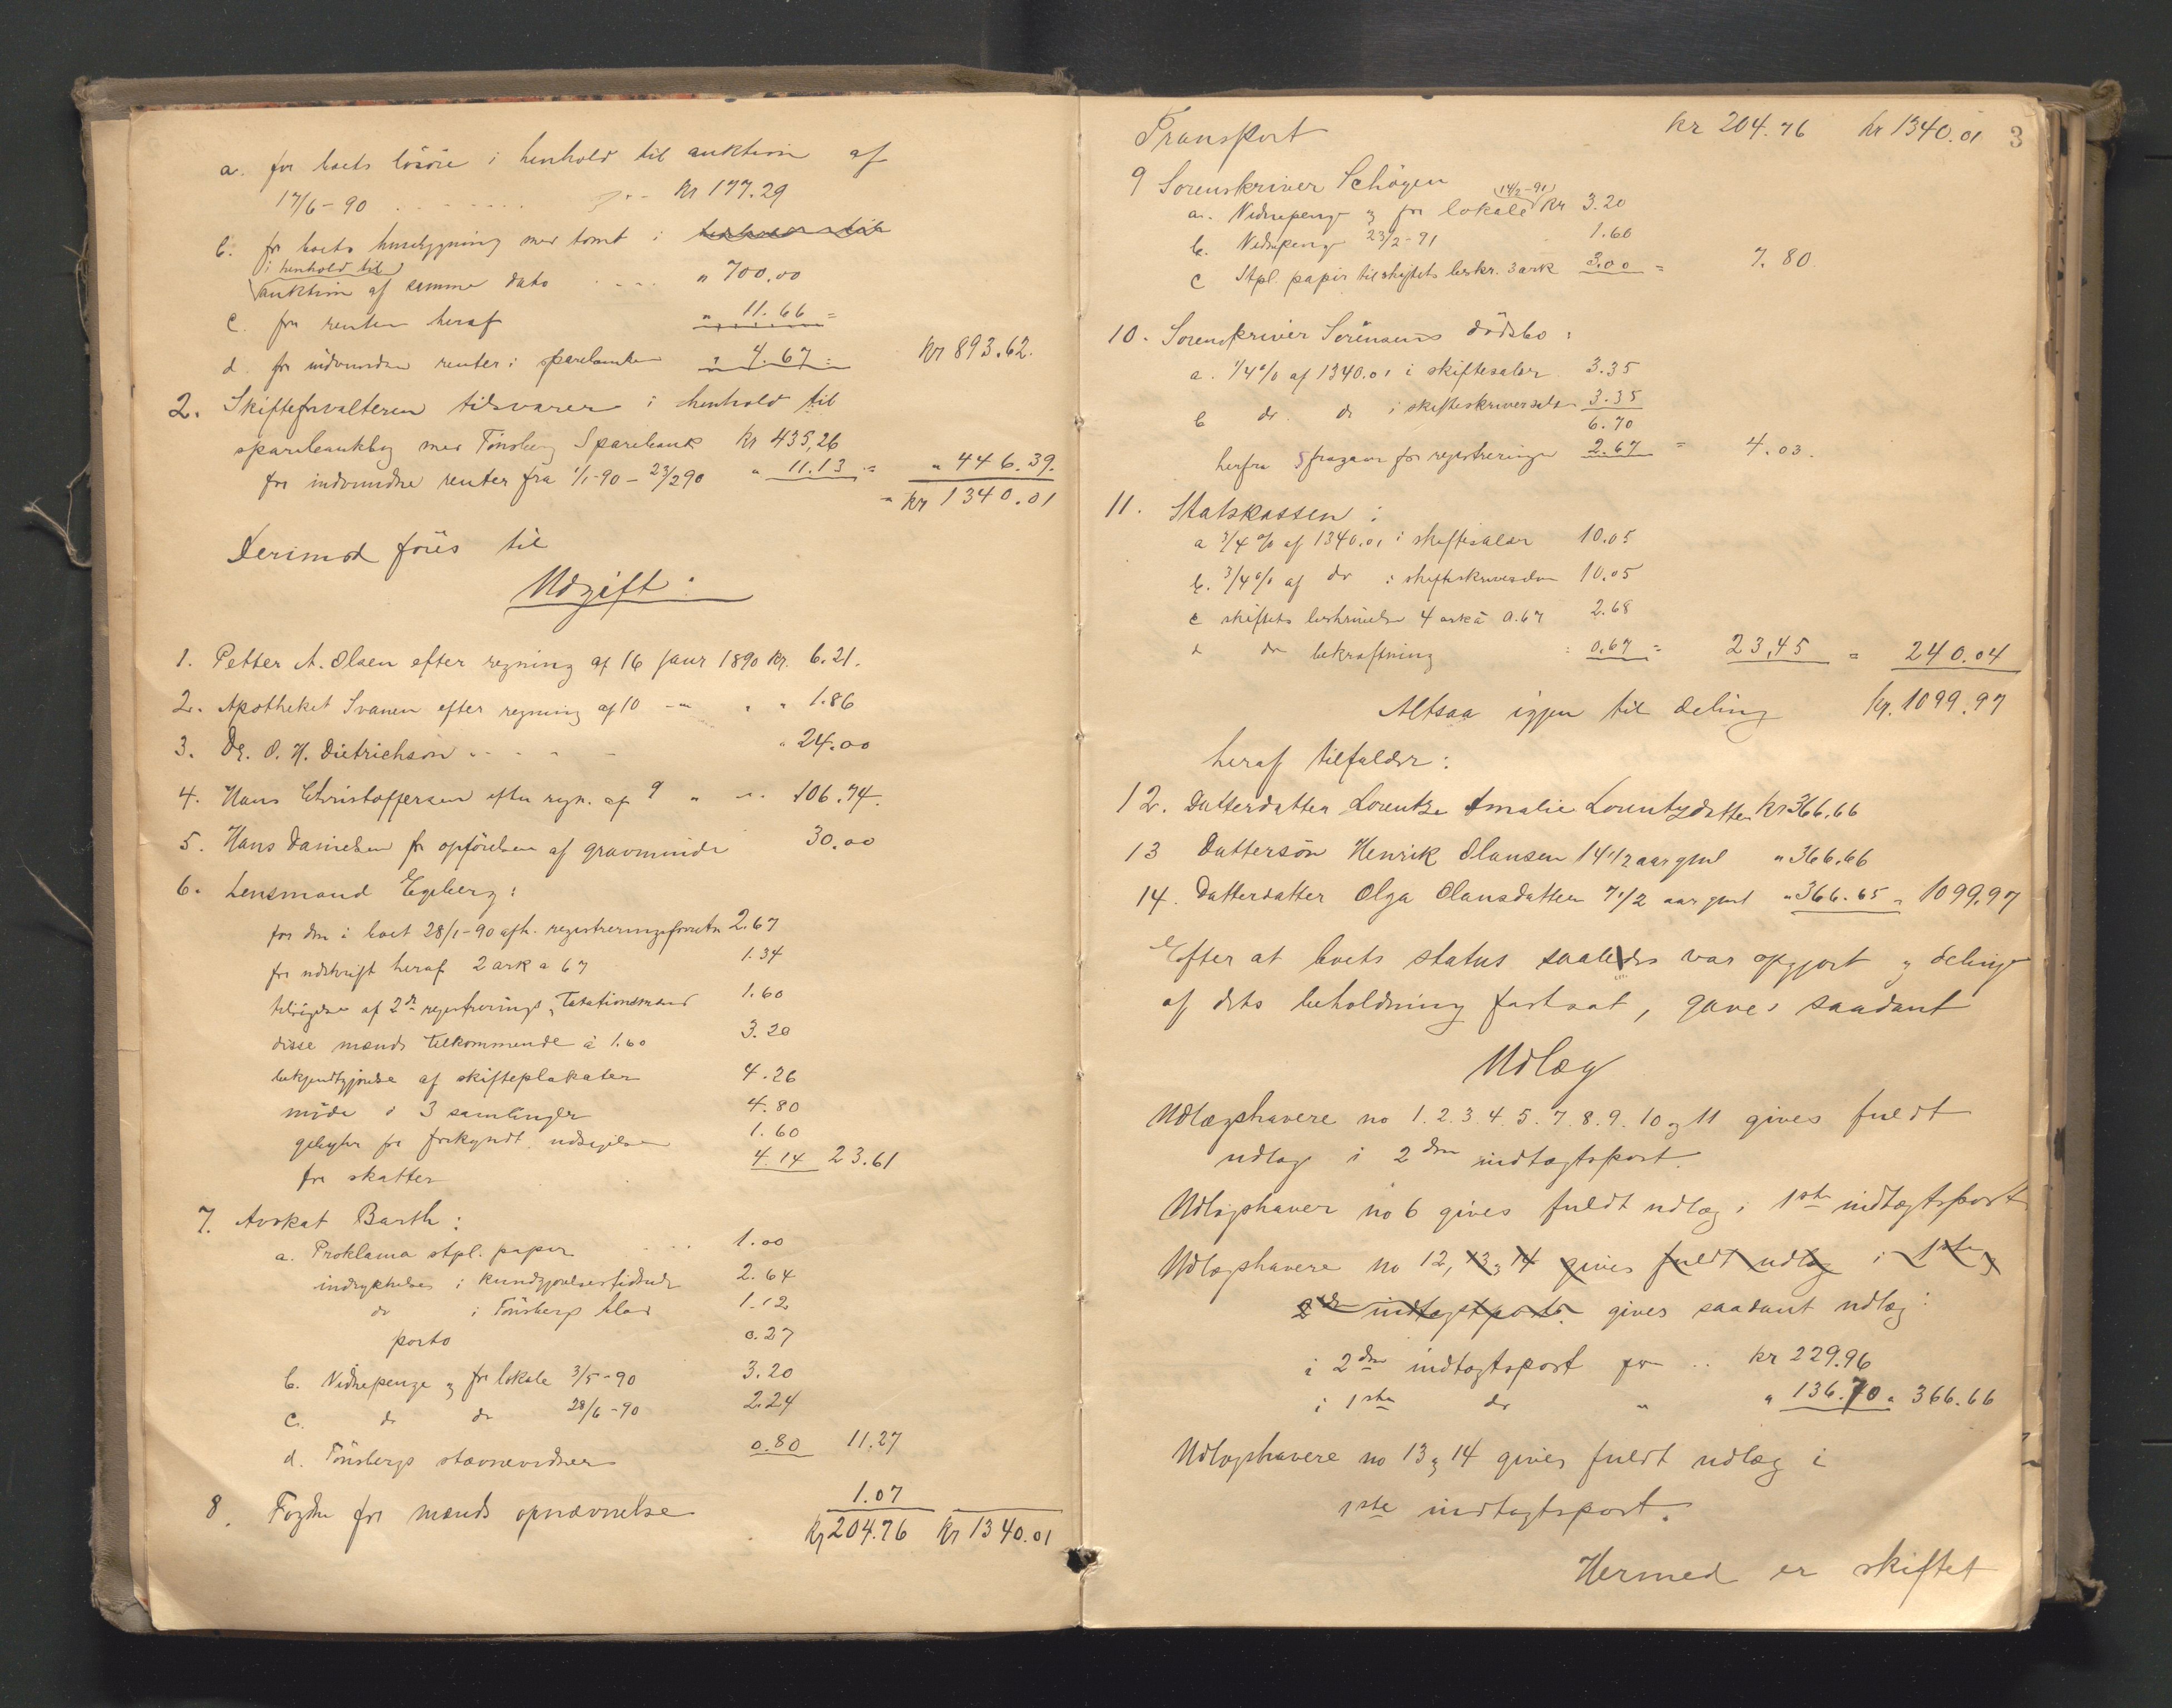 a. for boets løsøre i henhold til auktion af
17/6-90 . . . . . . Kr 177.29
b. for boets husbygning med tomt i henhold til
i henhold til
auktion af samme dato . . . . " 700.00
c. for renter heraf " 11.66 =
d. for indvundne renter i sparebanken " 4.67 = Kr 893.62.
2. Skifteforvalteren tilsvarer i henhold til
sparebankbog med Tönsberg Sparebank Kr 435,26
for indvundne renter fra 1/1-90 - 23/2 90 " 11.13 = " 446.39.
Kr 1340.01
Derimod føres til
Udgift:
1. Petter A. Olsen efter regning af 16 janr 1890 Kr. 6.21.
2. Apotheket Svanen efter regning af 10 - " " " 1.86
3. Dr. O. H. Dietrichson . . - - " 24.00
4. Hans Christoffersen efter regn. af 9 " " 106.74.
5. Hans Danielsen for opførelsen af gravminde 30.00
6. Lensmand Egeberg:
for den i boet 28/1-90 afh. registreringsforretn 2.67
for udskrift heraf 2 ark a 67 1.34
tilsigelse af 2de registrerings, Taxationsmænd 1.60
disse mænds tilkommende à 1.60 3.20
bekjendtgjørelse af skifteplakater 4.26
møde i 3 samlinger 4.80
gebyhr for forkyndt udsigelse 1.60
for skatter 4.14 23.61
7. Avokat Barth:
a. Proklama stpl. papir . . . 1.00
indrykkelses i Kundgjørelsestidende 2.64
do i Tönsbergs blad 1.12
porto 0.27
b. Vidnepenge og for lokale 3/5-90 3.20
c. do do 28/6-90 2.24
d. Tönsbergs stævnevidner 0.80 11.27
8. Fogden for mænds opnævnelse 1.07
Kr 204.76 Kr 1340.01
Transport Kr 204.76 Kr 1340.01 3
9 Sorenskriver Schøyen
a. Vidnepenge og for lokale 14/2-91 Kr 3.20
b. Vidnepenge 23/2-91 1.60
c Stpl. papir til skiftets beskr. 3 ark 3.00 = 7.80
10. Sorenskriver Sörensens dødsbo:
a. 1/4% af 1340.01 i skiftesalær 3.35
b do do i skifteskriversalær 3.35
6.70
herfra fragaar for registreringen 2.67 = 4.03.
11. Statskassen:
a 3/4% af 1340.01 i skiftesalær 10.05
b. 3/4% af do i skifteskriversalær 10.05
c skiftets beskrivelse 4 ark à 0.67 2.68
d do bekræftning : 0.67 = 23,45 = 240.04
Altsaa igjen til deling Kr. 1099.97
heraf tilfalder:
12. Datterdatter Lorentze Amalie Lorentzdatter Kr 366.66
13 Dattersøn Henrik Olausen 14 1/2 aar gml " 366.66
14. Datterdatter Olga Olausdatter 7 1/2 aar gml " 366.65 = 1099.97
Efter at boets status saaledes var opgjort og deling
af dets beholdning fastsat, gaves saadant
Udlæg
Udlægshavere no 1. 2. 3. 4. 5. 7. 8. 9. 10 og 11 gives fuldt
udlæg i 2den indtægtspost.
Udlægshaver no 6 gives fuldt udlæg i 1ste indtægtspost
Udlægshavere no 12, 13 og 14 gives fuldt udlæg i 1ste og
2de indtægtsposter gives saadant udlæg:
i 2den indtægtspost for .. Kr 229.96
i 1ste do " " 136.70 = 366.66
Udlægshavere no 13 og 14 gives fuldt udlæg i
1ste indtægtspost.
Hermed er skiftet